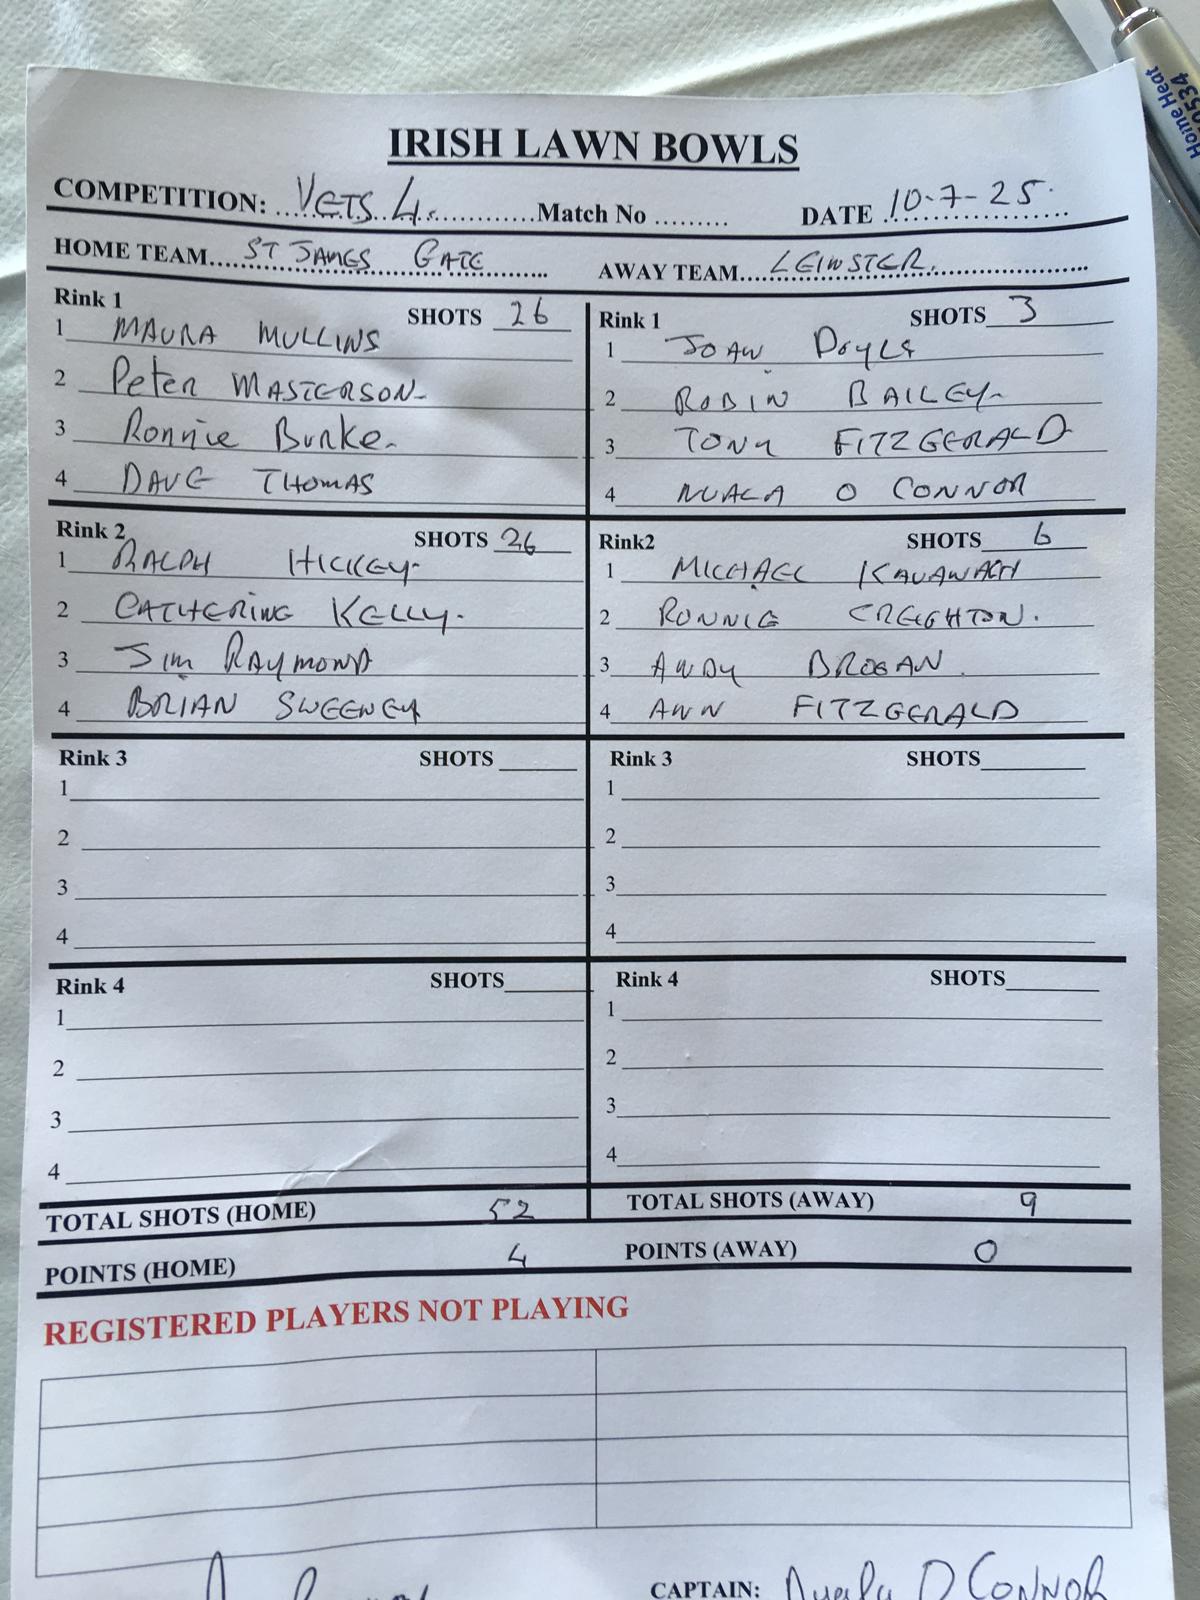 Home Heat
0534
IRISH LAWN BOWLS
COMPETITION: VETS 4. Match No ......... DATE 10-7-25.
HOME TEAM ST JAMES GATE AWAY TEAM LEINSTER.
Rink 1 SHOTS 26
1 MAURA MULLINS
2 Peter MASTERSON-
3 Ronnie Burke-
4 DAVE THOMAS
Rink 1 SHOTS 3
1 JOAN DOYLE
2 ROBIN BAILEY-
3 TONY FITZGERALD
4 NUALA O CONNOR
Rink 2 SHOTS 26
1 RALPH HICKEY-
2 CATHERINE KELLY-
3 Jim RAYMOND
4 BRIAN SWEENEY
Rink2 SHOTS 6
1 MICHAEL KAVANAGH
2 RONNIE CREIGHTON.
3 ANDY BROGAN.
4 ANN FITZGERALD
Rink 3 SHOTS
1
2
3
4
Rink 3 SHOTS
1
2
3
4
Rink 4 SHOTS
1
2
3
4
Rink 4 SHOTS
1
2
3
4
TOTAL SHOTS (HOME) 52 TOTAL SHOTS (AWAY) 9
POINTS (HOME) 4 POINTS (AWAY) 0
REGISTERED PLAYERS NOT PLAYING
CAPTAIN: Nuala O CONNOR